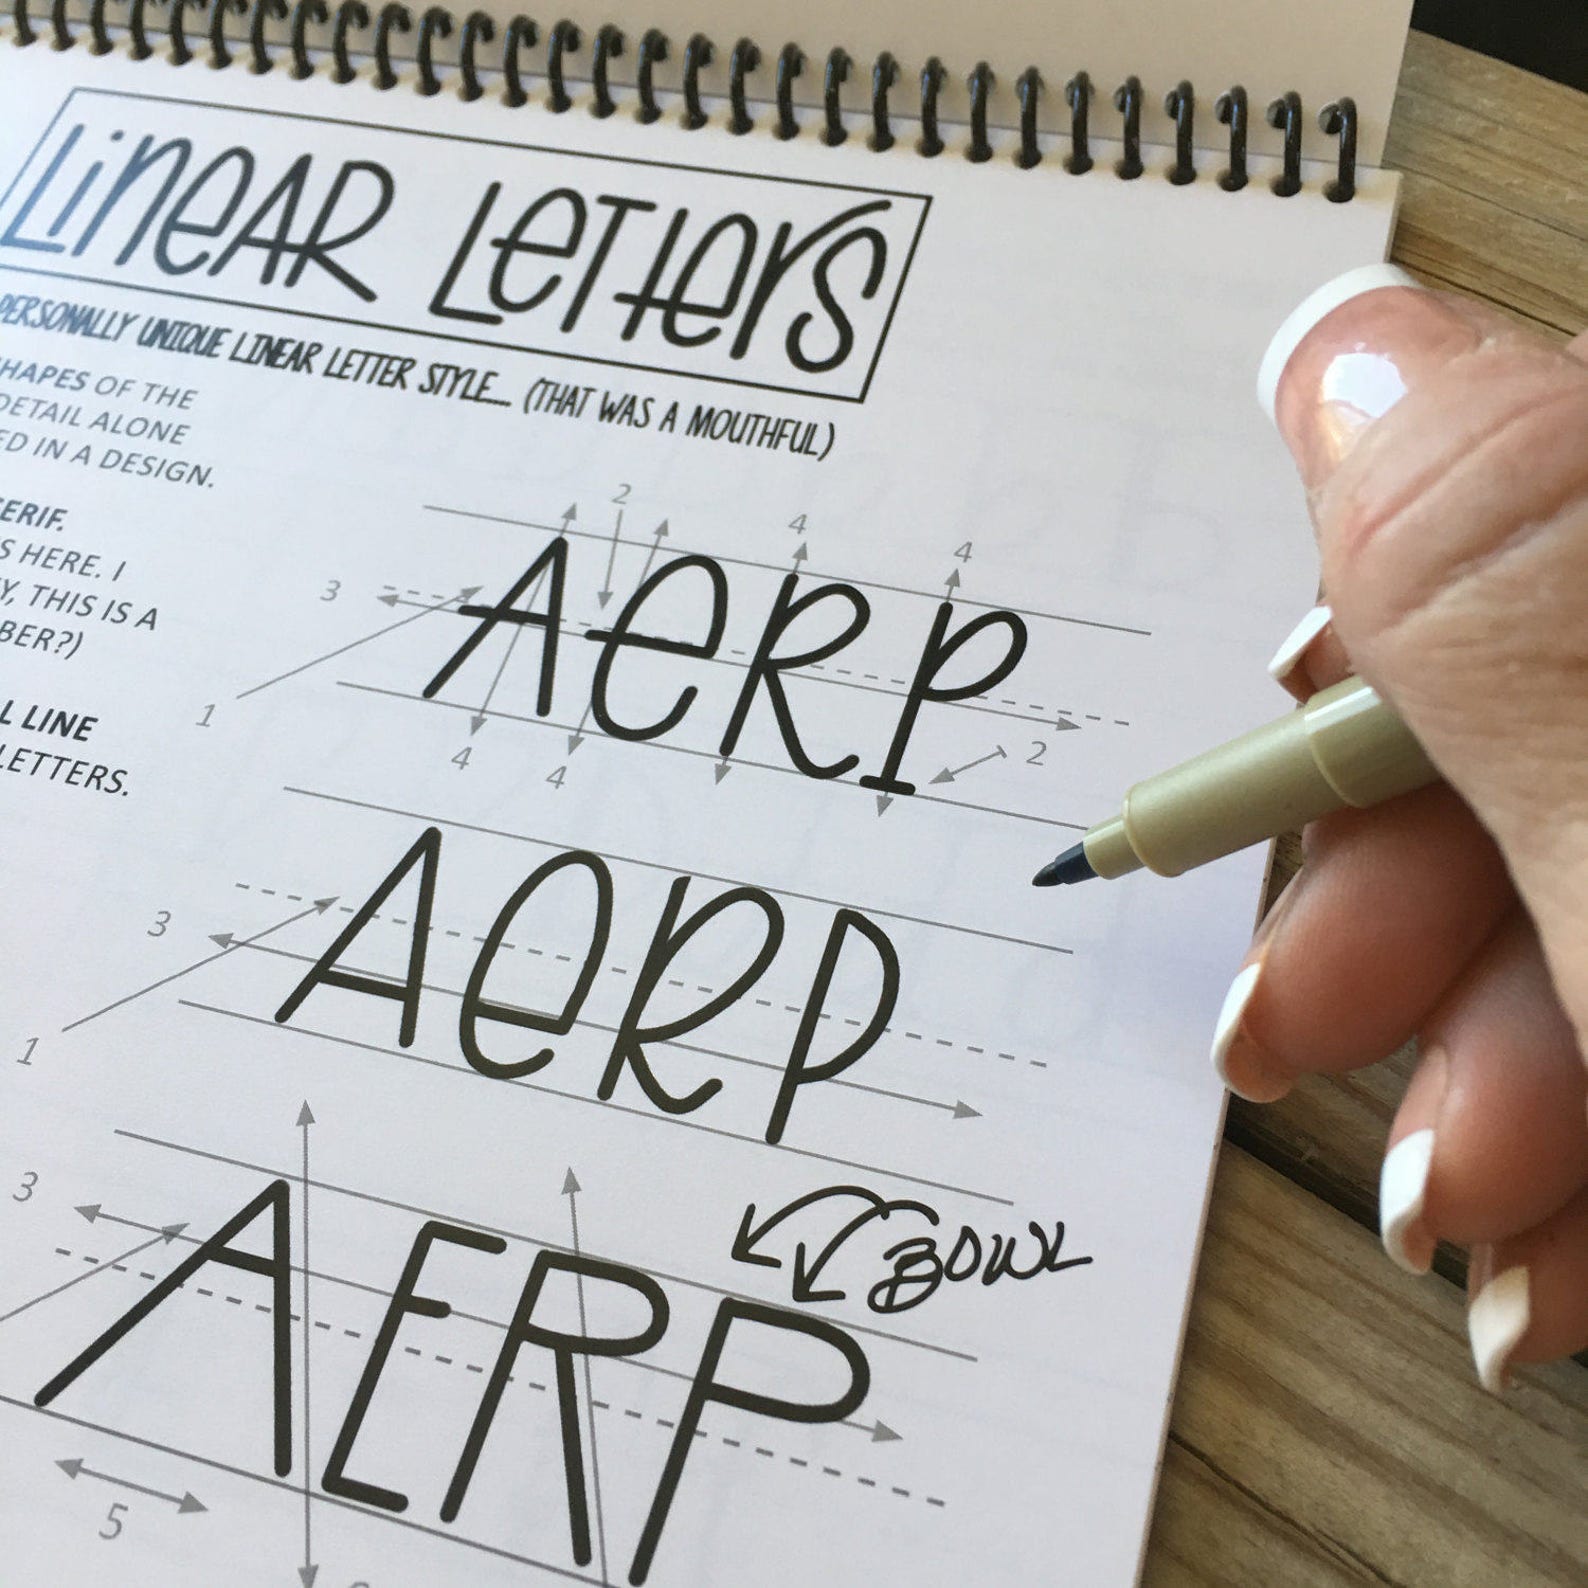 LineAR LeTTers
PERSONALLY UNIQUE LINEAR LETTER STYLE... (THAT WAS A MOUTHFUL)
SHAPES OF THE
DETAIL ALONE
IN A DESIGN.
HERE. I
THIS IS A
LINE
LETTERS.
2
4
4
3
AeRP
1
2
4
4
AeRP
3
1
3
BOWL
AERP
5